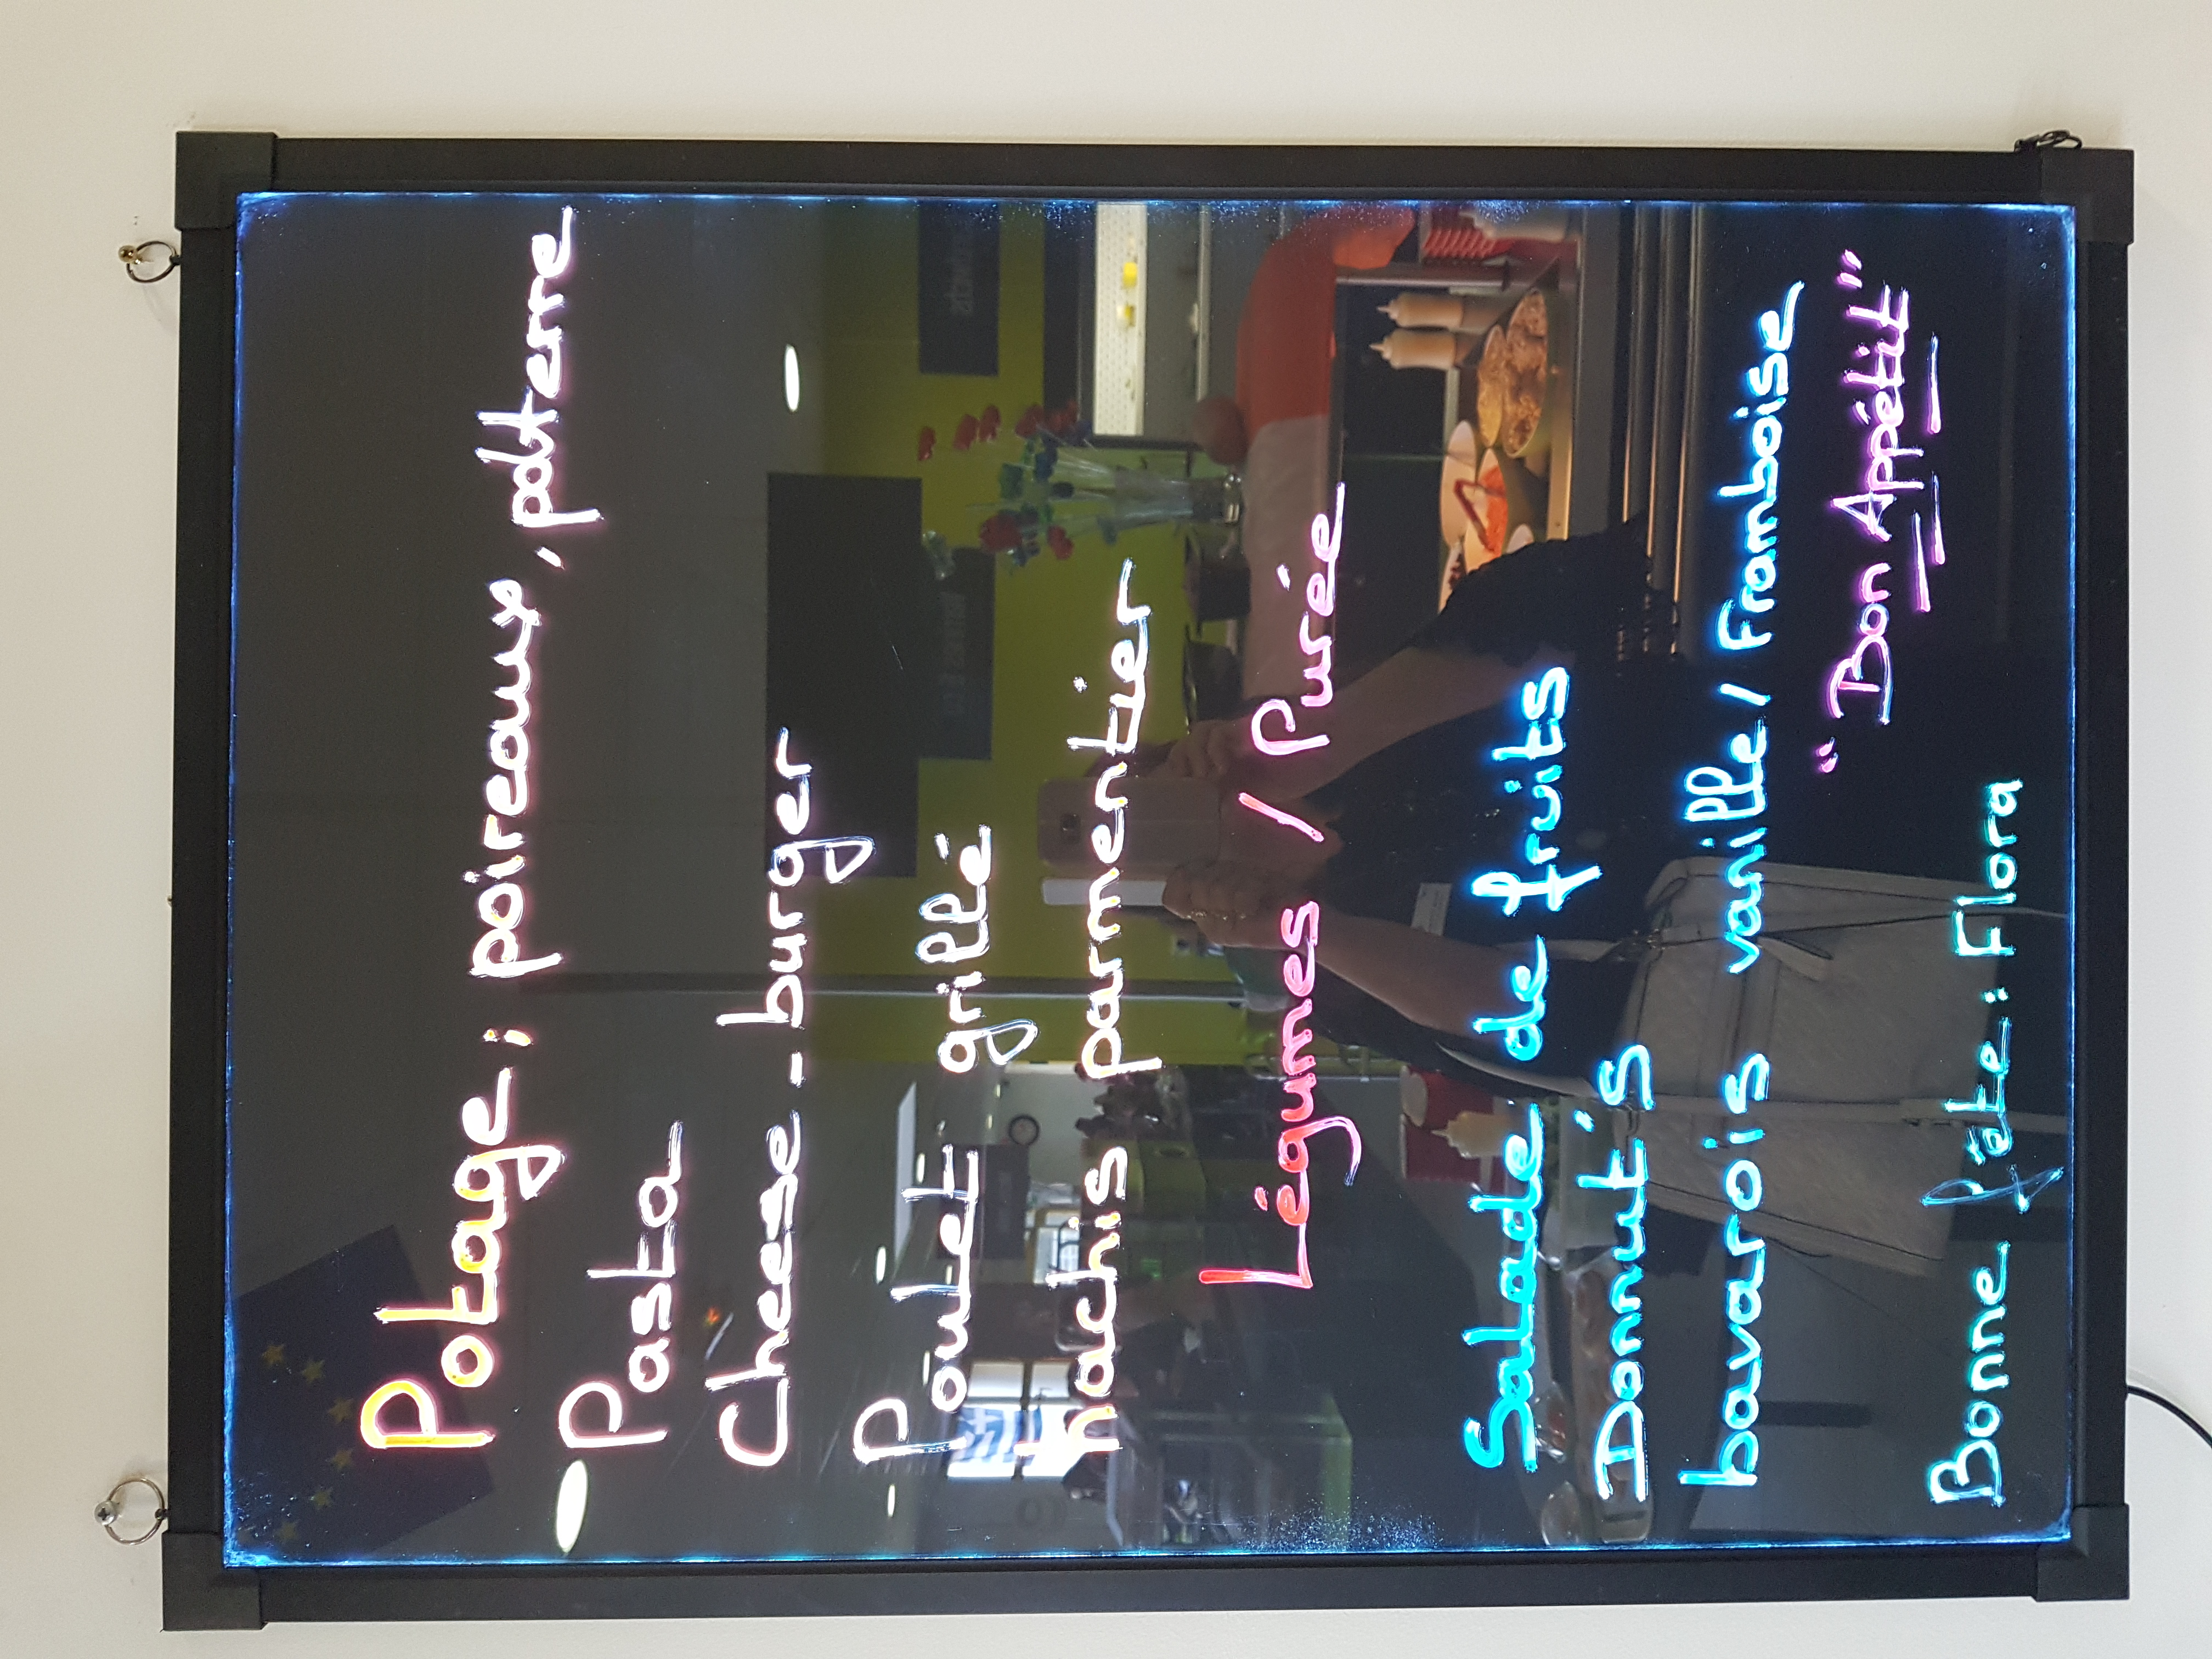 Potage : poireaux, pdterre
Pasta
Cheese-burger
Poulet grillé
hachis parmentier
Légumes / Purée
Salade de fruits
Donut's
bavarois vanille / Framboise
"Bon Appétit"
Bonne fête : Flora